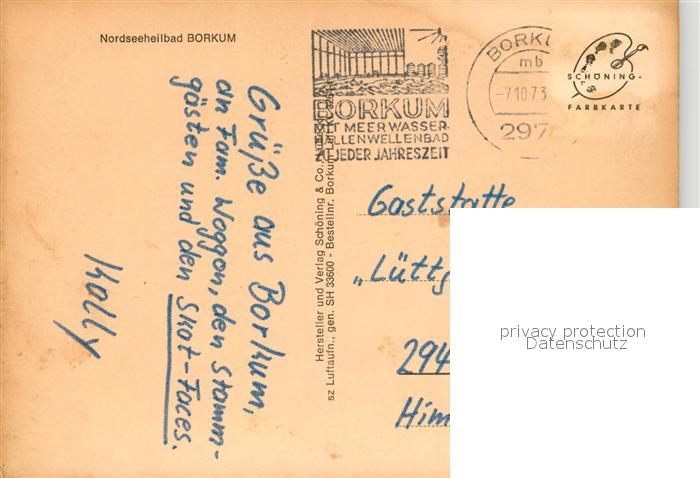 Nordseeheilbad BORKUM
Grüße aus Borkum,
an Fam. Woggon, den Stamm-
gästen und den Skat-Faces.
Kolly
Hersteller und Verlag Schöning & Co.
sz Luftaufn., gen. SH 33600 - Bestellnr. Borkum
BORKUM
MIT MEERWASSER-
HALLENWELLENBAD
ZU JEDER JAHRESZEIT
BORKU
mb
-7.10.73
297
SCHÖNING-
FARBKARTE
Gaststätte
„Lüttg
294
Him
privacy protection
Datenschutz